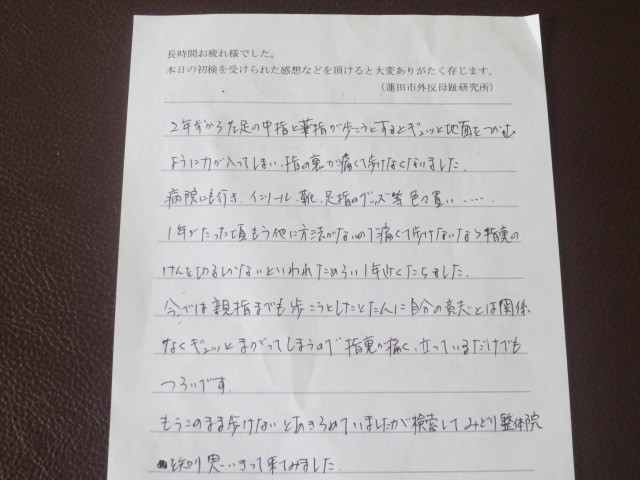 長時間お疲れ様でした。
本日の初検を受けられた感想などを頂けると大変ありがたく存じます。
（蓮田市外反母趾研究所）
2年半から左足の中指と薬指が歩こうとするとギュッと地面をつかむ
ように力が入ってしまい、指の裏が痛くて歩けなくなりました。
病院にも行き、インソール、靴、足指のグッズ等 色々買い・・・・・
1年がたった頃もう他に方法がないので痛くて歩けないなら指裏の
けんを切るしかないといわれため
らい1年近くたちました。
今では親指までも歩こうとしたとたんに自分の意志とは関係
なくギュッとまがってしまうので指裏が痛く、立っているだけでも
つらいです。
もうこのまま歩けないとあきらめていましたが検索してみどり整体院
を知り思いきって来てみました。